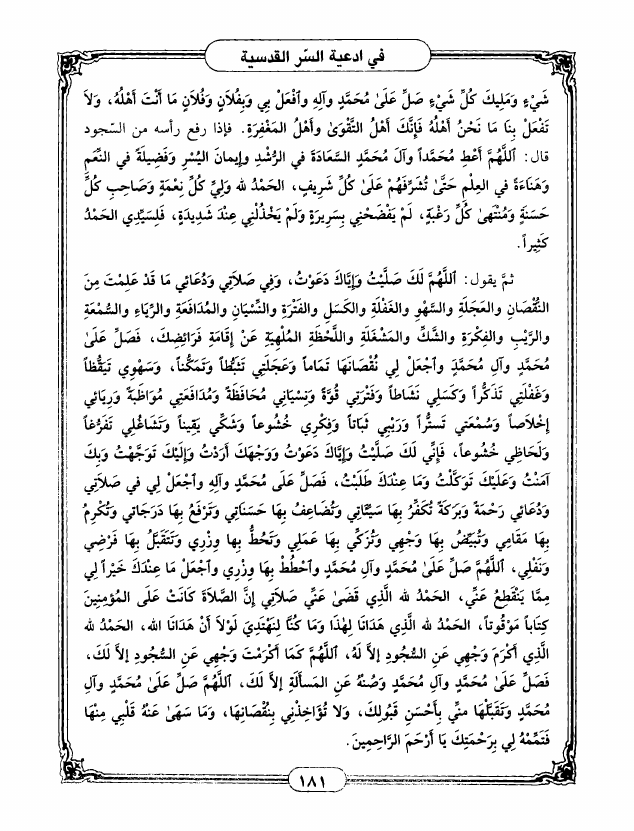 في ادعية السّر القدسية
شَيْءٍ وَمَلِيكَ كُلِّ شَيْءٍ صَلِّ عَلَىٰ مُحَمَّدٍ وَآلِهِ وَٱفْعَلْ بِي وَبِفُلَانٍ وَفُلَانٍ مَا أَنْتَ أَهْلُهُ، وَلَا
تَفْعَلْ بِنَا مَا نَحْنُ أَهْلُهُ فَإِنَّكَ أَهْلُ التَّقْوَىٰ وَأَهْلُ المَغْفِرَةِ. فإذا رفع رأسه من السّجود
قال: ٱللَّهُمَّ أَعْطِ مُحَمَّداً وَآلَ مُحَمَّدٍ السَّعَادَةَ في الرُّشْدِ وإِيمَانَ اليُسْرِ وَفَضِيلَةً في النِّعَمِ
وَهَنَاءَةً في العِلْمِ حَتَّىٰ تُشَرِّفَهُمْ عَلَىٰ كُلِّ شَرِيفٍ، الحَمْدُ لله وَلِيِّ كُلِّ نِعْمَةٍ وَصَاحِبِ كُلِّ
حَسَنَةٍ وَمُنْتَهَىٰ كُلِّ رَغْبَةٍ، لَمْ يَفْضَحْنِي بِسَرِيرَةٍ وَلَمْ يَخْذُلْنِي عِنْدَ شَدِيدَةٍ، فَلِسَيِّدِي الحَمْدُ
كَثِيراً.
ثمّ يقول: ٱللَّهُمَّ لَكَ صَلَّيْتُ وَإِيَّاكَ دَعَوْتُ، وَفِي صَلَاتِي وَدُعَائِي مَا قَدْ عَلِمْتَ مِنَ
النُّقْصَانِ وَالعَجَلَةِ والسَّهْوِ والغَفْلَةِ والكَسَلِ والفَتْرَةِ والنِّسْيَانِ والمُدَافَعَةِ والرِّيَاءِ والسُّمْعَةِ
والرَّيْبِ والفِكْرَةِ والشَّكِّ والمَشْغَلَةِ واللَّحْظَةِ المُلْهِيَةِ عَنْ إِقَامَةِ فَرَائِضِكَ، فَصَلِّ عَلَىٰ
مُحَمَّدٍ وَآلِ مُحَمَّدٍ وَٱجْعَلْ لِي نُقْصَانَهَا تَمَاماً وَعَجَلَتِي تَثَبُّطاً وَتَمَكُّناً، وَسَهْوِي تَيَقُّظاً
وَغَفْلَتِي تَذَكُّراً وَكَسَلِي نَشَاطاً وَفَتْرَتِي قُوَّةً وَنِسْيَانِي مُحَافَظَةً وَمُدَافَعَتِي مُوَاظَبَةً وَرِيَائِي
إِخْلَاصاً وَسُمْعَتِي تَسَتُّراً وَرَيْبِي ثَبَاتاً وَفِكْرِي خُشُوعاً وَشَكِّي يَقِيناً وَتَشَاغُلِي تَفَرُّغاً
وَلَحَاظِي خُشُوعاً، فَإِنِّي لَكَ صَلَّيْتُ وَإِيَّاكَ دَعَوْتُ وَوَجْهَكَ أَرَدْتُ وَإِلَيْكَ تَوَجَّهْتُ وَبِكَ
آمَنْتُ وَعَلَيْكَ تَوَكَّلْتُ وَمَا عِنْدَكَ طَلَبْتُ، فَصَلِّ عَلَى مُحَمَّدٍ وآلِهِ وَٱجْعَلْ لِي في صَلَاتِي
وَدُعَائِي رَحْمَةً وَبَرَكَةً تُكَفِّرُ بِهَا سَيِّئَاتِي وَتُضَاعِفُ بِهَا حَسَنَاتِي وَتَرْفَعُ بِهَا دَرَجَاتِي وَتُكْرِمُ
بِهَا مَقَامِي وَتُبَيِّضُ بِهَا وَجْهِي وَتُزَكِّي بِهَا عَمَلِي وَتَحُطُّ بِها وِزْرِي وَتَتَقَبَّلُ بِهَا فَرْضِي
وَنَفْلِي، ٱللَّهُمَّ صَلِّ عَلَىٰ مُحَمَّدٍ وآلِ مُحَمَّدٍ وَٱحْطُطْ بِهَا وِزْرِي وَٱجْعَلْ مَا عِنْدَكَ خَيْراً لِي
مِمَّا يَنْقَطِعُ عَنِّي، الحَمْدُ لله الَّذِي قَضَىٰ عَنِّي صَلَاتِي إِنَّ الصَّلَاةَ كَانَتْ عَلَى المُؤْمِنِينَ
كِتَاباً مَوْقُوتاً، الحَمْدُ لله الَّذِي هَدَانَا لِهٰذَا وَمَا كُنَّا لِنَهْتَدِيَ لَوْلَا أَنْ هَدَانَا الله، الحَمْدُ لله
الَّذِي أَكْرَمَ وَجْهِي عَنِ السُّجُودِ إِلاَّ لَهُ، ٱللَّهُمَّ كَمَا أَكْرَمْتَ وَجْهِي عَنِ السُّجُودِ إِلاَّ لَكَ،
فَصَلِّ عَلَىٰ مُحَمَّدٍ وَآلِ مُحَمَّدٍ وَصُنْهُ عَنِ المَسأَلَةِ إِلاَّ لَكَ، ٱللَّهُمَّ صَلِّ عَلَىٰ مُحَمَّدٍ وَآلِ
مُحَمَّدٍ وَتَقَبَّلْهَا مِنِّي بِأَحْسَنِ قَبُولِكَ، وَلَا تُؤَاخِذْنِي بِنُقْصَانِهَا، وَمَا سَهَىٰ عَنْهُ قَلْبِي مِنْهَا
فَتَمِّمْهُ لِي بِرَحْمَتِكَ يَا أَرْحَمَ الرَّاحِمِينَ.
١٨١